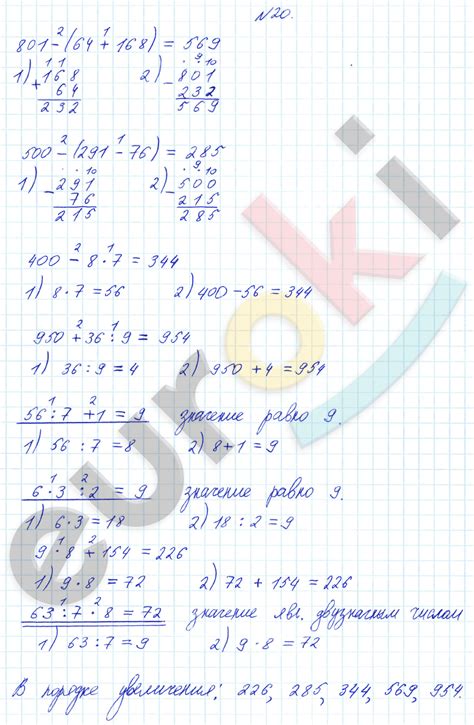 №20.
801 - (64 + 168) = 569
1) 168 + 64 = 232   2) 801 - 232 = 569
500 - (291 - 76) = 285
1) 291 - 76 = 215   2) 500 - 215 = 285
400 - 8 · 7 = 344
1) 8 · 7 = 56   2) 400 - 56 = 344
950 + 36 : 9 = 954
1) 36 : 9 = 4   2) 950 + 4 = 954
56 : 7 + 1 = 9 значение равно 9.
1) 56 : 7 = 8   2) 8 + 1 = 9
6 · 3 : 2 = 9 значение равно 9.
1) 6 · 3 = 18   2) 18 : 2 = 9
9 · 8 + 154 = 226
1) 9 · 8 = 72   2) 72 + 154 = 226
63 : 7 · 8 = 72 значение явл. двузначным числом
1) 63 : 7 = 9   2) 9 · 8 = 72
В порядке увеличения: 226, 285, 344, 569, 954.
euroki